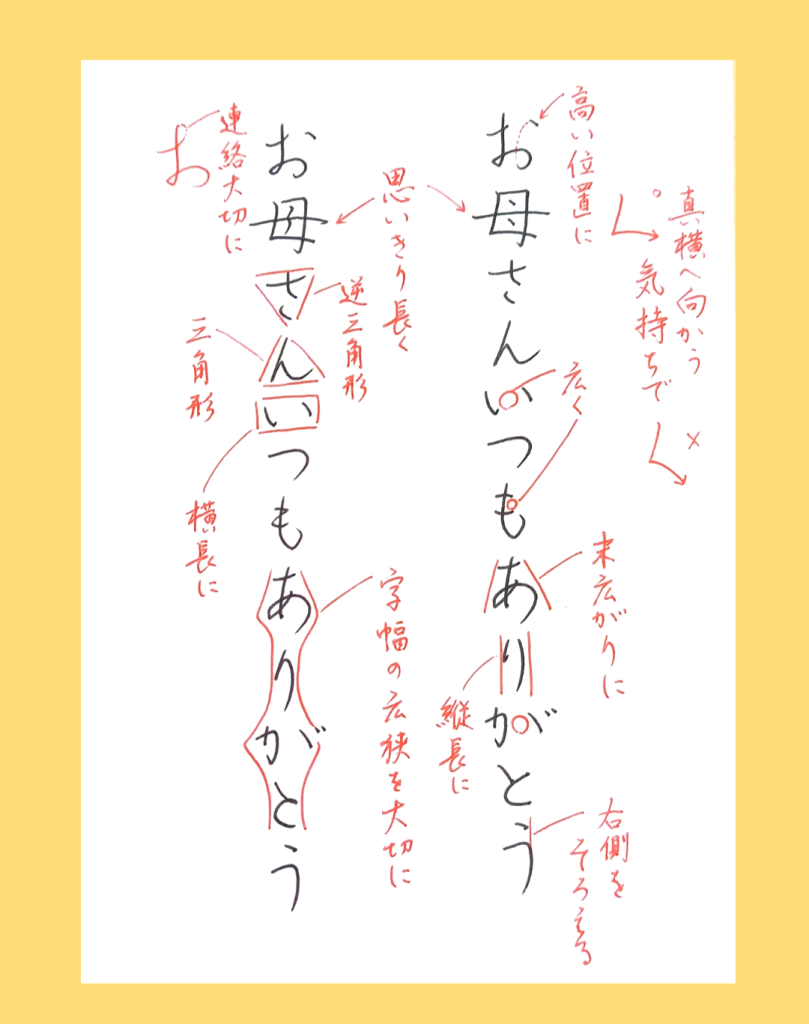 真横へ向かう
気持ちで
高い位置に
お母さんいつもありがとう
広く
末広がりに
縦長に
右側を
そろえる
思いきり長く
お母さんいつもありがとう
連絡大切に
お
逆三角形
三角形
横長に
字幅の広狭を大切に